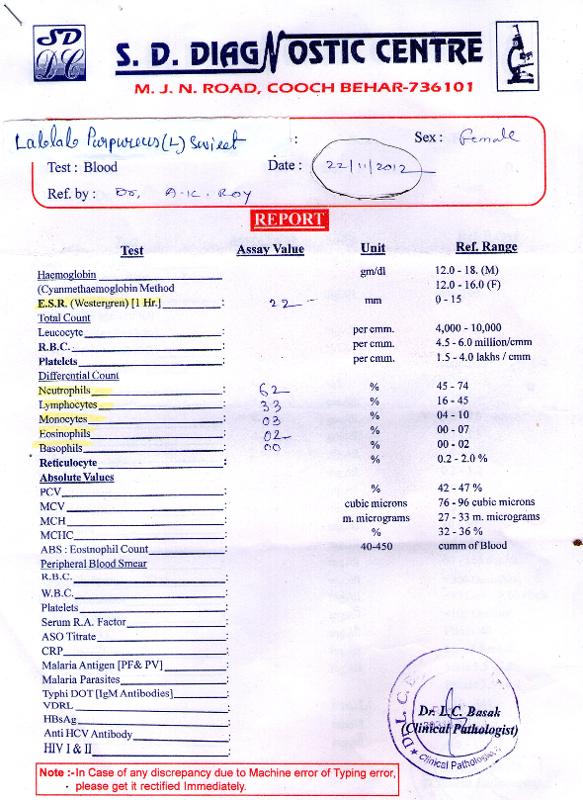 SD
DC
S. D. DIAGNOSTIC CENTRE
M. J. N. ROAD, COOCH BEHAR-736101
Lablab Purpureus (L) Sweet : Sex : Female
Test : Blood Date : 22/11/2012
Ref. by : Dr, A.K. ROY
REPORT
Test Assay Value Unit Ref. Range
Haemoglobin gm/dl 12.0 - 18. (M)
(Cyanmethaemoglobin Method 12.0 - 16.0 (F)
E.S.R. (Westergren) [1 Hr.] 22 mm 0 - 15
Total Count
Leucocyte : per cmm. 4,000 - 10,000
R.B.C. : per cmm. 4.5 - 6.0 million/cmm
Platelets : per cmm. 1.5 - 4.0 lakhs / cmm
Differential Count
Neutrophils : 62 % 45 - 74
Lymphocytes : 33 % 16 - 45
Monocytes : 03 % 04 - 10
Eosinophils : 02 % 00 - 07
Basophils : 00 % 00 - 02
Reticulocyte : % 0.2 - 2.0 %
Absolute Values
PCV : % 42 - 47 %
MCV : cubic microns 76 - 96 cubic microns
MCH : m. micrograms 27 - 33 m. micrograms
MCHC : % 32 - 36 %
ABS : Eostnophil Count : 40-450 cumm of Blood
Peripheral Blood Smear
R.B.C. :
W.B.C. :
Platelets :
Serum R.A. Factor :
ASO Titrate :
CRP :
Malaria Antigen [PF& PV] :
Malaria Parasites :
Typhi DOT [IgM Antibodies] :
VDRL :
HBsAg :
Anti HCV Antibody :
HIV I & II :
Dr. I.C. Basak
(Clinical Pathologist)
Clinical Pathologist
Note :-In Case of any discrepancy due to Machine error of Typing error,
please get it rectified Immediately.